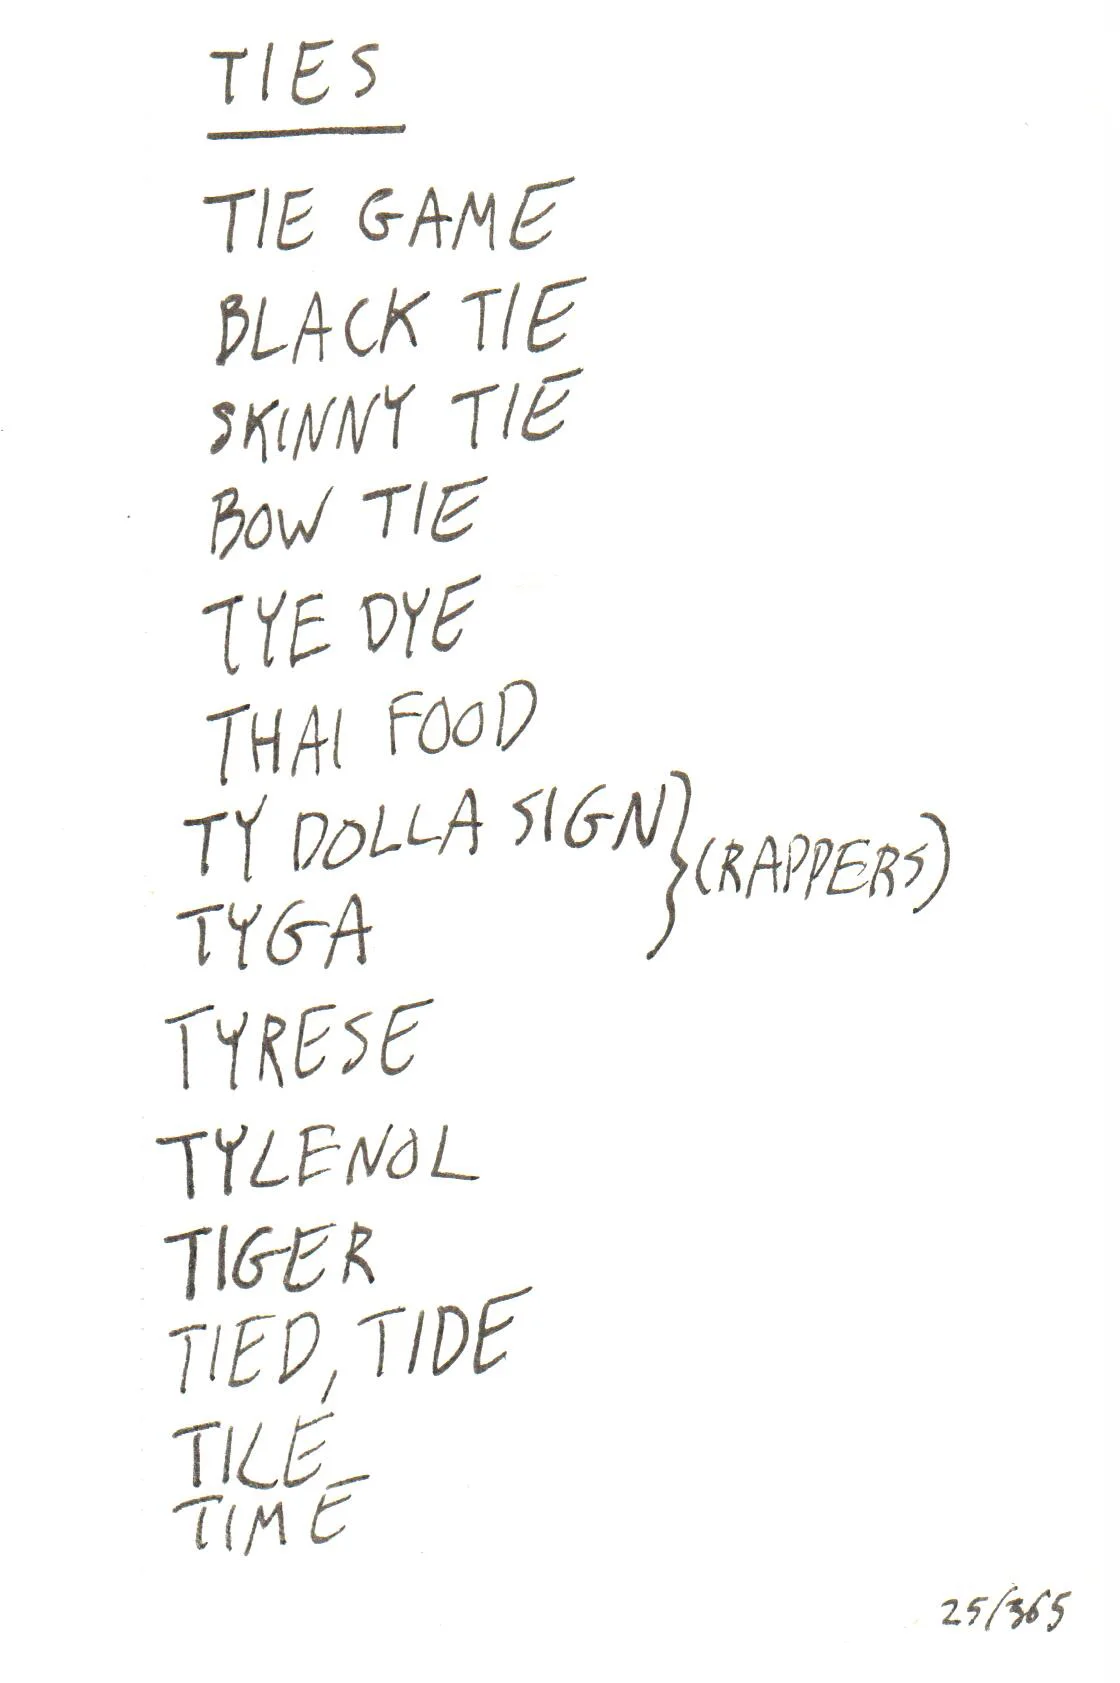 TIES
TIE GAME
BLACK TIE
SKINNY TIE
BOW TIE
TYE DYE
THAI FOOD
TY DOLLA SIGN } (RAPPERS)
TYGA
TYRESE
TYLENOL
TIGER
TIED, TIDE
TILE
TIME
25/365